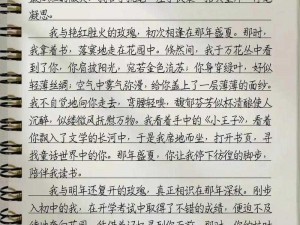 凝思。
我与艳红胜火的玫瑰，初次相逢在那年盛夏。那时，
我拿着书，落寞地走在花园中。倏然间，我于万花丛中看
到了你，你肩披阳光，宛若金色流苏，你身穿绿叶，好似
轻薄绸缎，空气中雾气弥漫，给你盖上了一层薄薄的面纱。
我不自觉地向你走去，弯腰轻嗅，馥郁芬芳似杯清酿使人
沉醉，似缕微风抚慰万物。我看着手中的《小王子》，看
着你飘入了文学的长河中，于是我席地而坐，打开书页，寻
找童话世界中的你。那时的玫瑰，你让我停下彷徨的脚步，
陪伴我读书。
我与明年还复开的玫瑰，真正相识在那年深秋。刚步
入初中的我，在开学考试中取得了不错的成绩，便迫不及